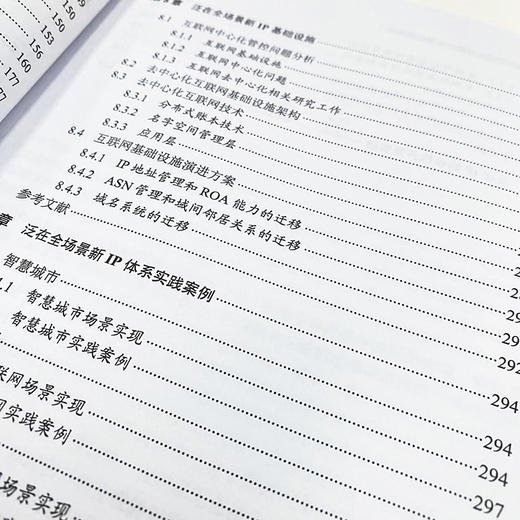 150
150
153
156
160
177
泛在全场景新 IP 基础设施
8.1 互联网中心化管控问题分析
8.1.1 互联网基础设施
8.1.2 互联网中心化问题
8.1.3 互联网去中心化相关研究工作
8.2 去中心化互联网基础设施架构
8.3 去中心化互联网技术
8.3.1 分布式账本技术
8.3.2 名字空间管理层
8.3.3 应用层
8.4 互联网基础设施演进方案
8.4.1 IP 地址管理和 ROA 能力的迁移
8.4.2 ASN 管理和域间邻居关系的迁移
8.4.3 域名系统的迁移
参考文献
章 泛在全场景新 IP 体系实践案例
智慧城市
智慧城市场景实现 292
智慧城市实践案例
联网场景实现 294
实践案例 294
294
场景实现 297